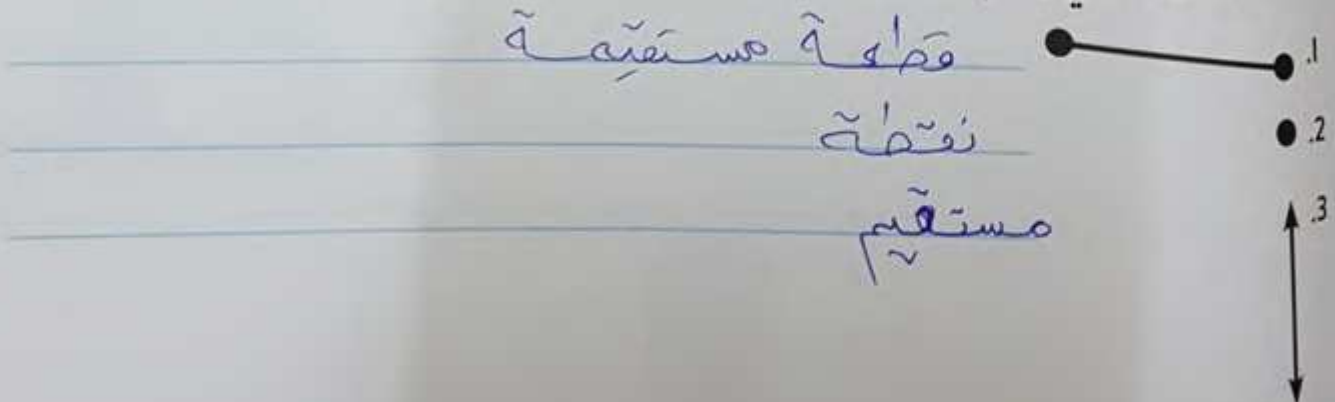 .1 قطعة مستقيمة
.2 نقطة
.3 مستقيم